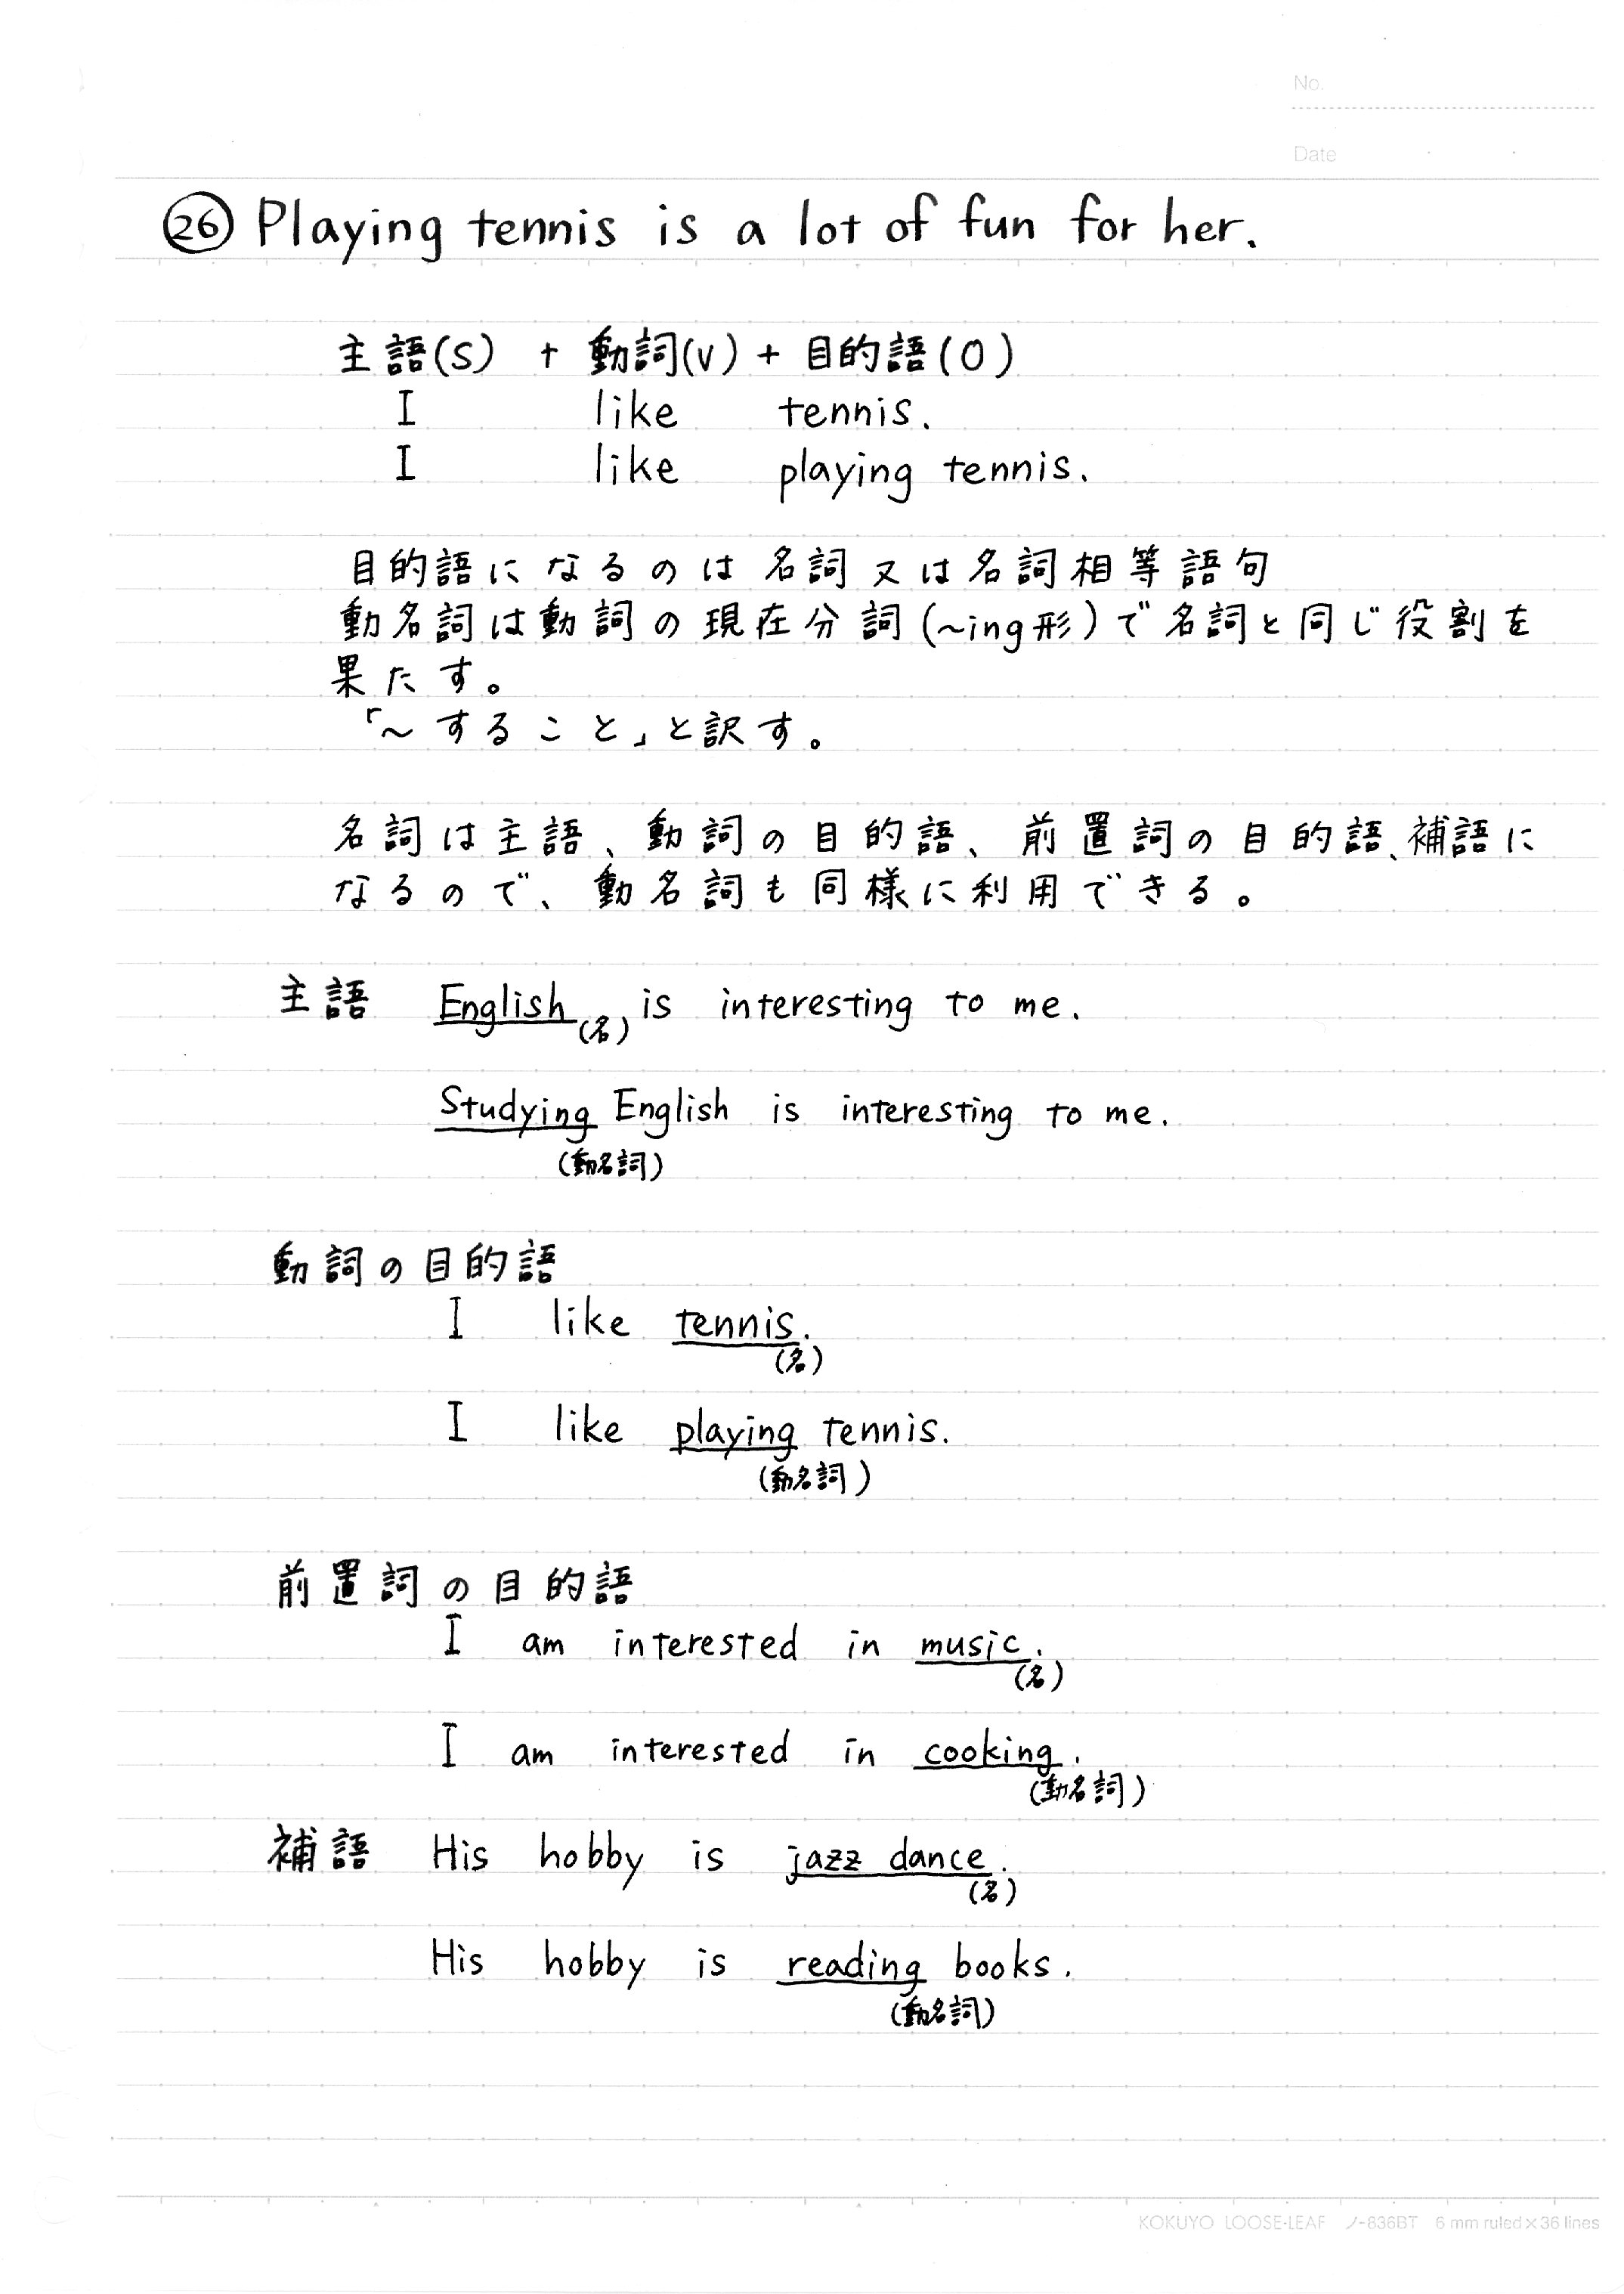 No.
Date
㉖ Playing tennis is a lot of fun for her.
主語(S) + 動詞(V) + 目的語(O)
I like tennis.
I like playing tennis.
目的語になるのは名詞又は名詞相等語句
動名詞は動詞の現在分詞(~ing形)で名詞と同じ役割を
果たす。
「~すること」と訳す。
名詞は主語、動詞の目的語、前置詞の目的語、補語に
なるので、動名詞も同様に利用できる。
主語 English (名) is interesting to me.
Studying English is interesting to me.
(動名詞)
動詞の目的語
I like tennis.
(名)
I like playing tennis.
(動名詞)
前置詞の目的語
I am interested in music.
(名)
I am interested in cooking.
(動名詞)
補語 His hobby is jazz dance.
(名)
His hobby is reading books.
(動名詞)
KOKUYO LOOSE-LEAF ノ-836BT 6 mm ruled×36 lines